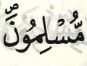 مُّسْلِمُونَۖ